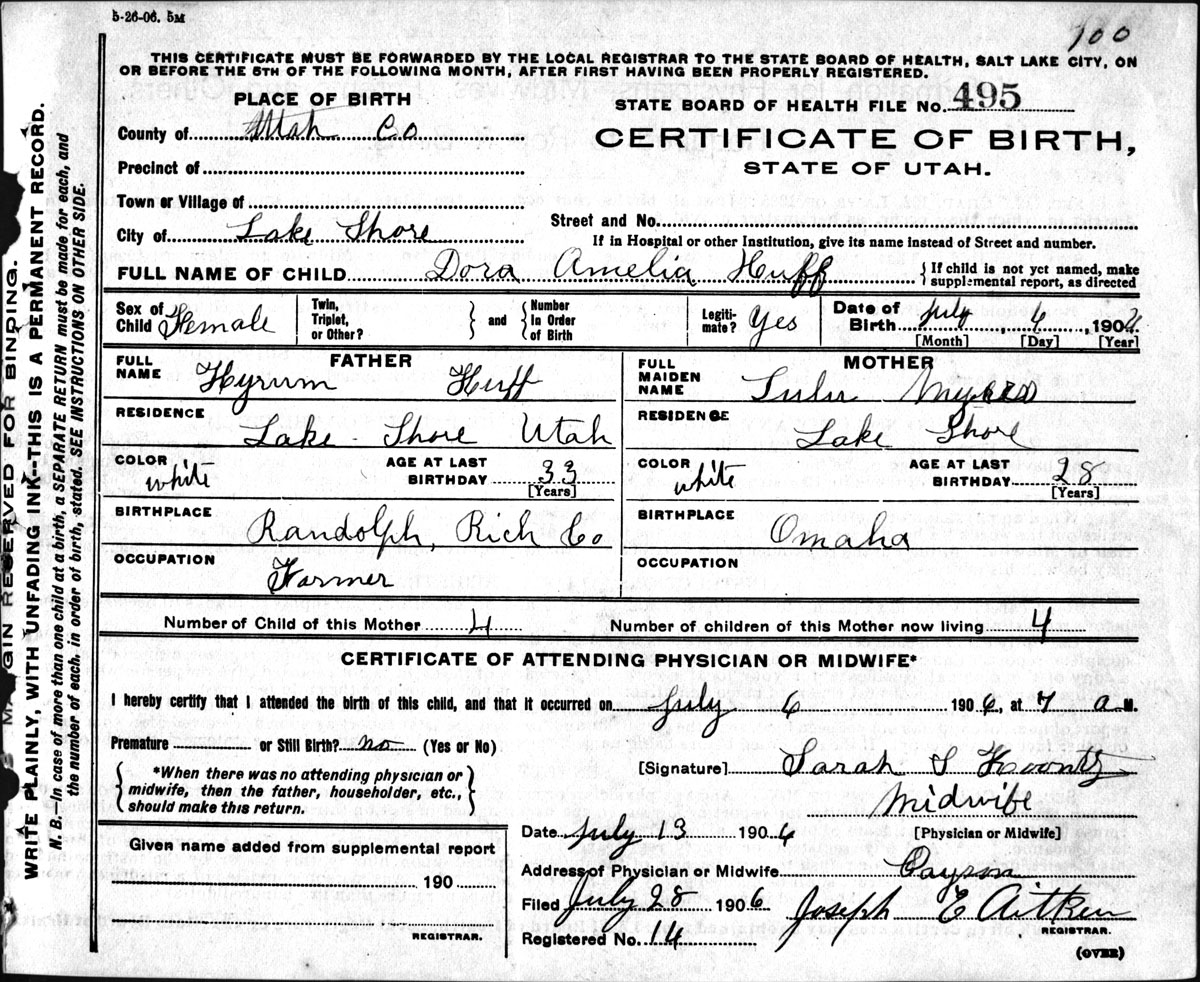 5-26-06. 5M
100
THIS CERTIFICATE MUST BE FORWARDED BY THE LOCAL REGISTRAR TO THE STATE BOARD OF HEALTH, SALT LAKE CITY, ON
OR BEFORE THE 5TH OF THE FOLLOWING MONTH, AFTER FIRST HAVING BEEN PROPERLY REGISTERED.
PLACE OF BIRTH
STATE BOARD OF HEALTH FILE No. 495
County of Utah Co
CERTIFICATE OF BIRTH,
STATE OF UTAH.
Precinct of
Town or Village of
Street and No.
City of Lake Shore
If in Hospital or other Institution, give its name instead of Street and number.
FULL NAME OF CHILD Dora Amelia Huff { If child is not yet named, make
supplemental report, as directed
Sex of Child Female Twin, Triplet, or Other? } and { Number In Order of Birth Legiti-mate? Yes Date of Birth July 6, 1906
[Month] [Day] [Year]
FATHER
MOTHER
FULL NAME Hyrum Huff
FULL MAIDEN NAME Lulu
RESIDENCE Lake Shore Utah
RESIDENCE Lake Shore
COLOR white AGE AT LAST BIRTHDAY 33 [Years]
COLOR white AGE AT LAST BIRTHDAY 28 [Years]
BIRTHPLACE Randolph, Rich Co
BIRTHPLACE Omaha
OCCUPATION Farmer
OCCUPATION
Number of Child of this Mother 4 Number of children of this Mother now living 4
CERTIFICATE OF ATTENDING PHYSICIAN OR MIDWIFE*
I hereby certify that I attended the birth of this child, and that it occurred on July 6 1906, at 7 a M.
Premature or Still Birth? no (Yes or No).
[Signature] Sarah S Koontz
{ *When there was no attending physician or
midwife, then the father, householder, etc.,
should make this return. }
Midwife
[Physician or Midwife]
Date July 13 1906
Given name added from supplemental report
190
REGISTRAR.
Address of Physician or Midwife Payson
Filed July 28 1906 Joseph E Aitken
REGISTRAR.
Registered No. 14
(OVER)
GIN RESERVED FOR BINDING.
WRITE PLAINLY, WITH UNFADING INK--THIS IS A PERMANENT RECORD.
N. B.—In case of more than one child at a birth, a SEPARATE RETURN must be made for each, and
the number of each, in order of birth, stated. SEE INSTRUCTIONS ON OTHER SIDE.